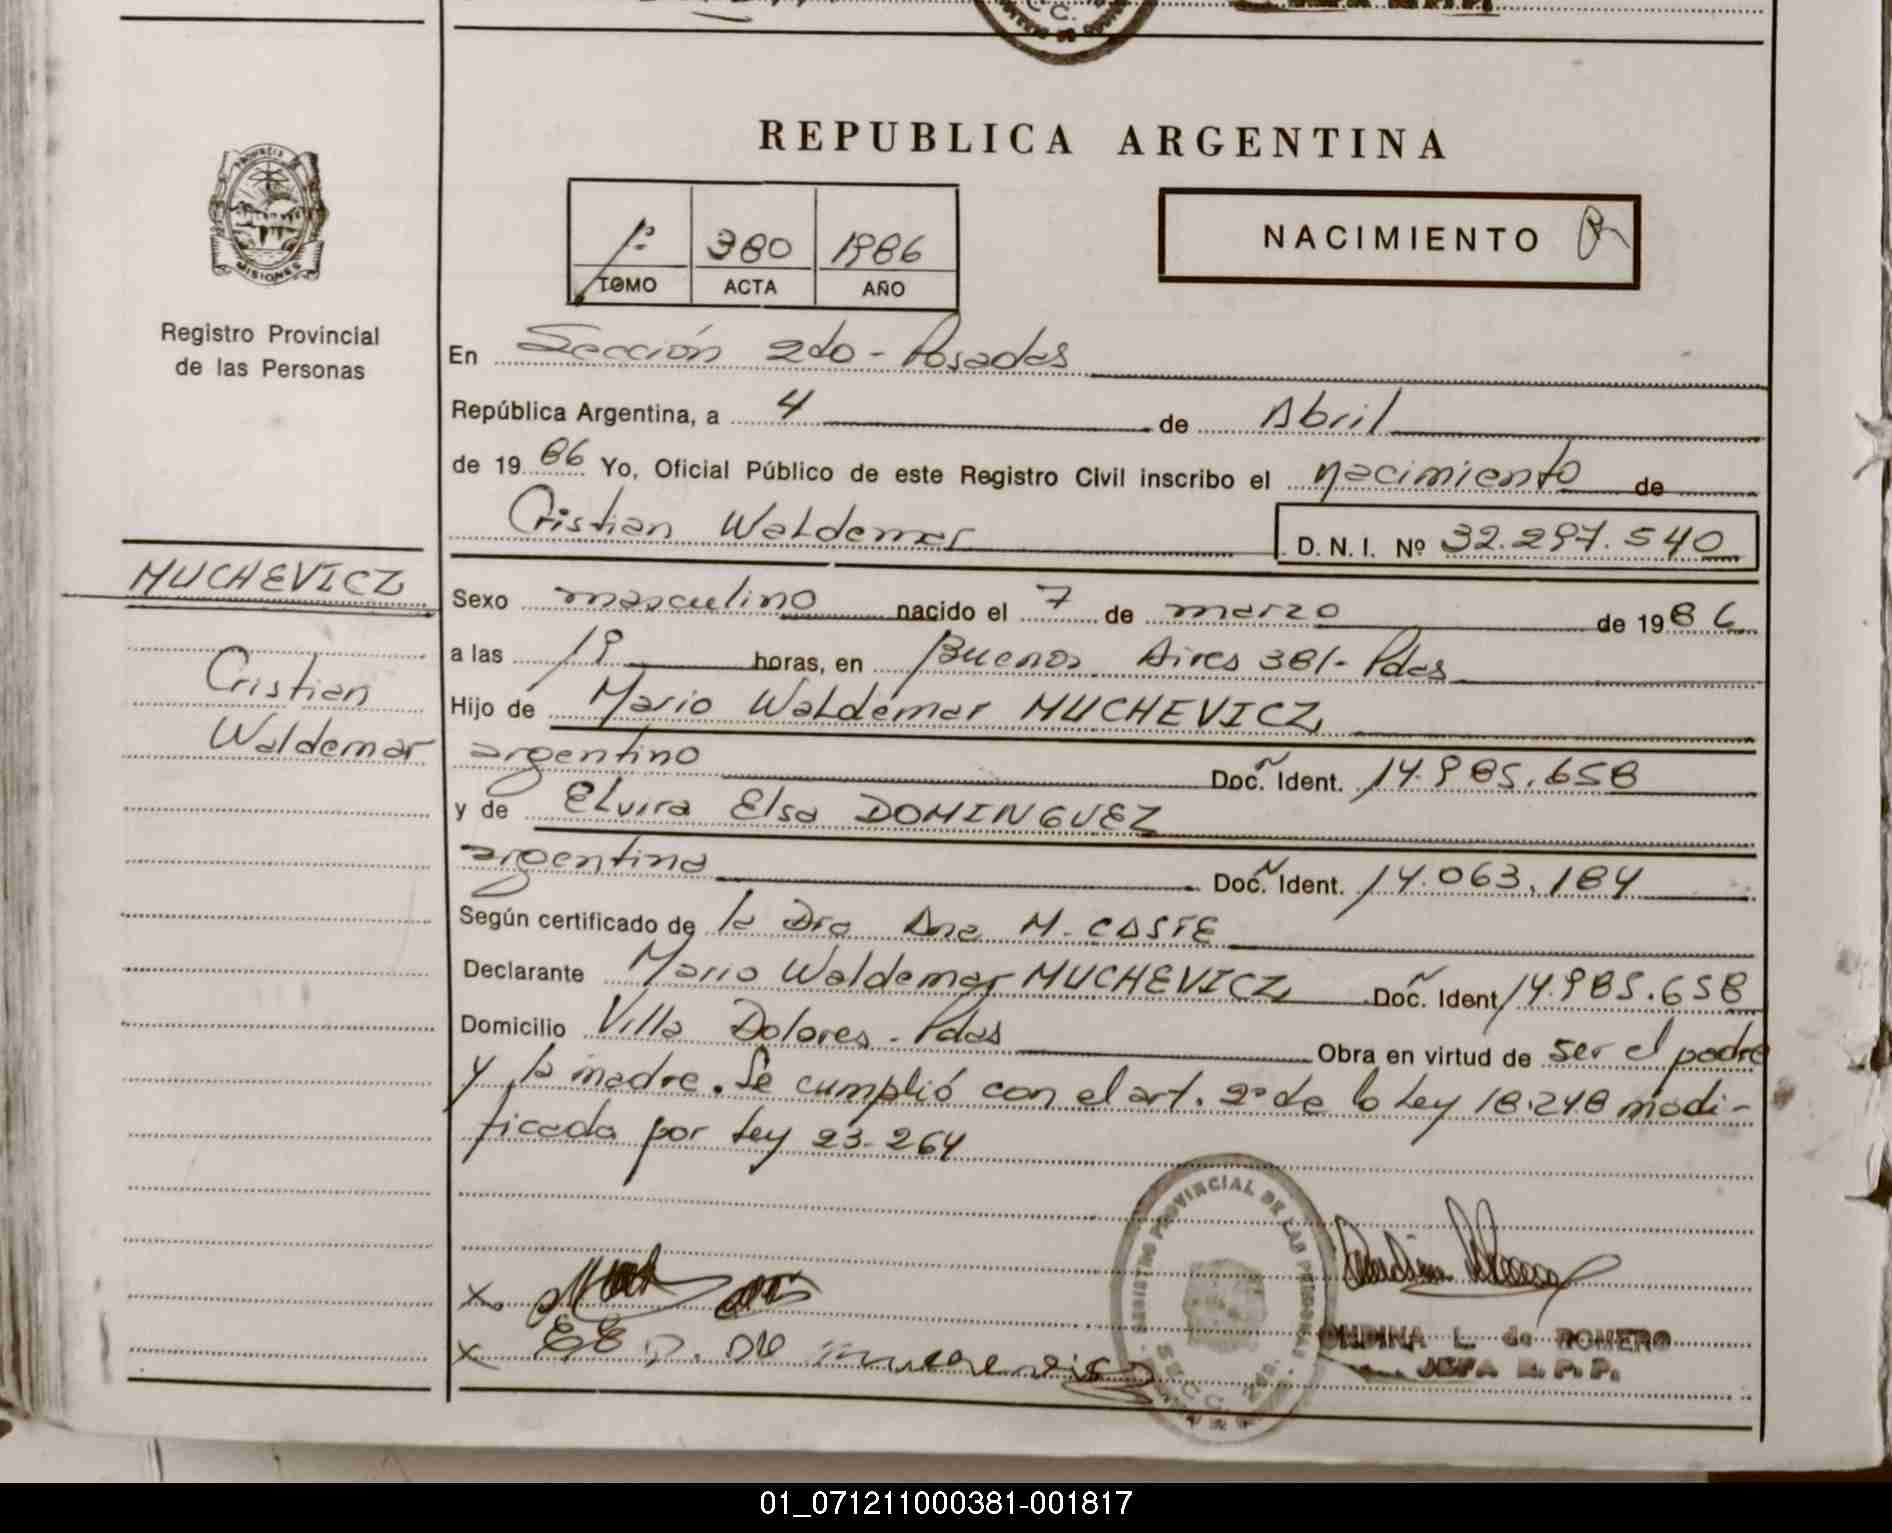 REPUBLICA ARGENTINA
PROVINCIA DE
MISIONES
Registro Provincial
de las Personas
1º 380 1986
TOMO ACTA AÑO
NACIMIENTO
En Sección 2do - Posadas
República Argentina, a 4 de Abril
de 1986 Yo, Oficial Público de este Registro Civil inscribo el nacimiento de
Cristian Waldemar D. N. I. Nº 32.297.540
MUCHEVICZ
Cristian
Waldemar
Sexo masculino nacido el 7 de marzo de 1986
a las 19 horas, en Buenos Aires 381 - Pdas
Hijo de Mario Waldemar MUCHEVICZ
argentino Doc. Ident. 14.985.658
y de Elvira Elsa DOMINGUEZ
argentina Doc. Ident. 14.063.184
Según certificado de la Dra Ana M. COSTE
Declarante Mario Waldemar MUCHEVICZ Doc. Ident 14.985.658
Domicilio Villa Dolores - Pdas Obra en virtud de ser el padre
y la madre. Se cumplió con el art. 2º de la Ley 18.248 modi-
ficada por Ley 23.264
REGISTRO PROVINCIAL DE LAS PERSONAS
X
X E E D. De
ONDINA L. de ROMERO
JEFA R. P. P.
01_071211000381-001817